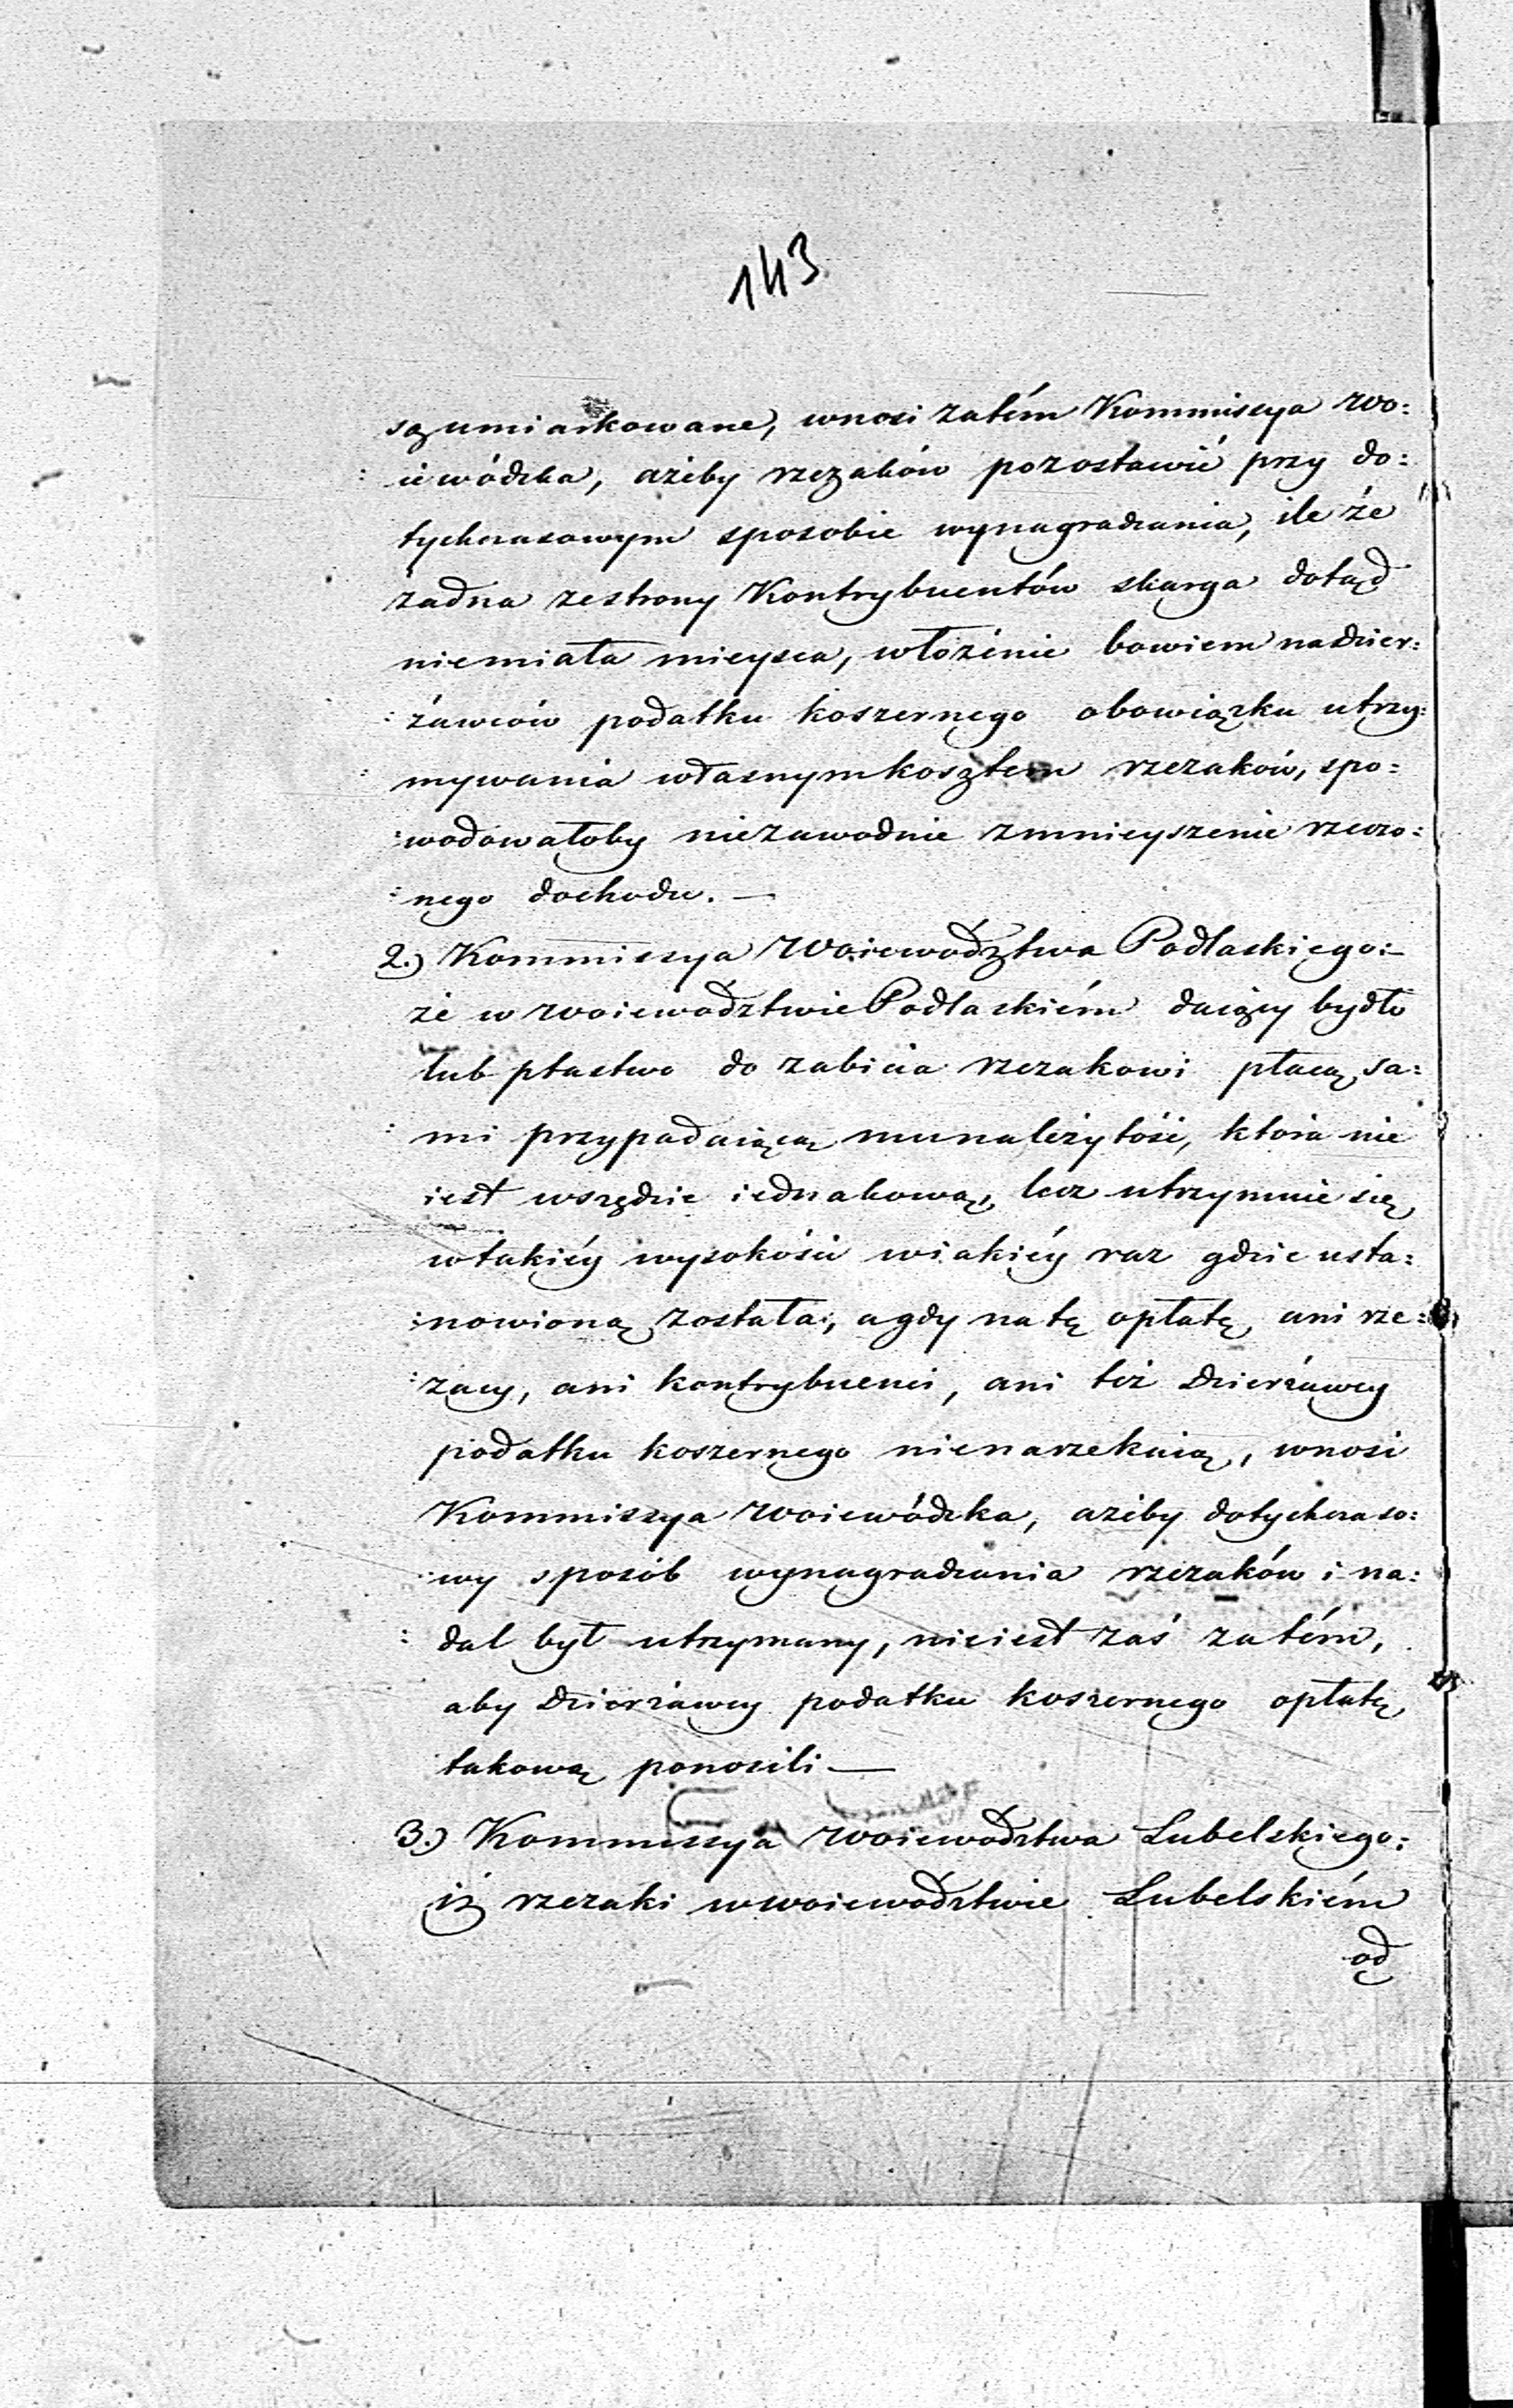 143
są umiarkowane, wnosi zatém Kommissya Wo:
:iewódzka, ażeby rzezaków pozostawić przy do:
tychczasowym sposobie wynagradzania, ile że
żadna ze strony Kontrybuentów skarga dotąd
niemiała mieysca, włożenie bowiem na dzier:
:żawców podatku koszernego obowiązku utrzy:
:mywania własnym kosztem rzezaków, spo:
:wodowałoby niezawodnie zmnieyszenie rzeczo:
:nego dochodu. —
2.) Kommissya Woiewództwa Podlaskiego:—
że w Woiewództwie Podlaskiém daiący bydło
lub ptastwo do zabicia rzezakowi płacą sa:
:mi przypadaiącą mu należytość, która nie
iest wszędzie iednakową, lecz utrzymuie się
w takiéy wysokości w iakiéy raz gdzie usta:
:nowioną została, a gdy na tę opłatę, ani rze:
:zacy, ani kontrybuenci, ani też Dzierżawcy
podatku koszernego nienarzekaią, wnosi
Kommissya Woiewódzka, ażeby dotychczaso:
:wy sposób wynagradzania rzezaków i na:
:dal był utrzymany, nieiest zaś zatém,
aby Dzierżawcy podatku koszernego opłatę
takową ponosili —
3.) Kommissya Woiewództwa Lubelskiego:
iż rzezaki w woiewództwie Lubelskiém
od